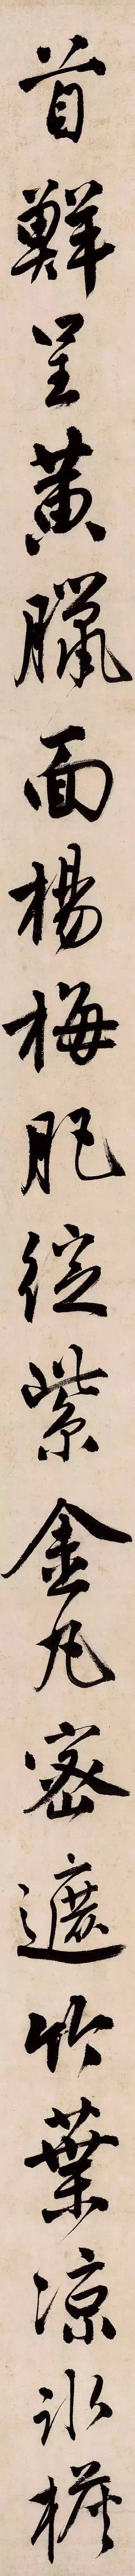 首鮮呈黃臘面楊梅肥綻紫金丸密遮竹葉涼冰檨